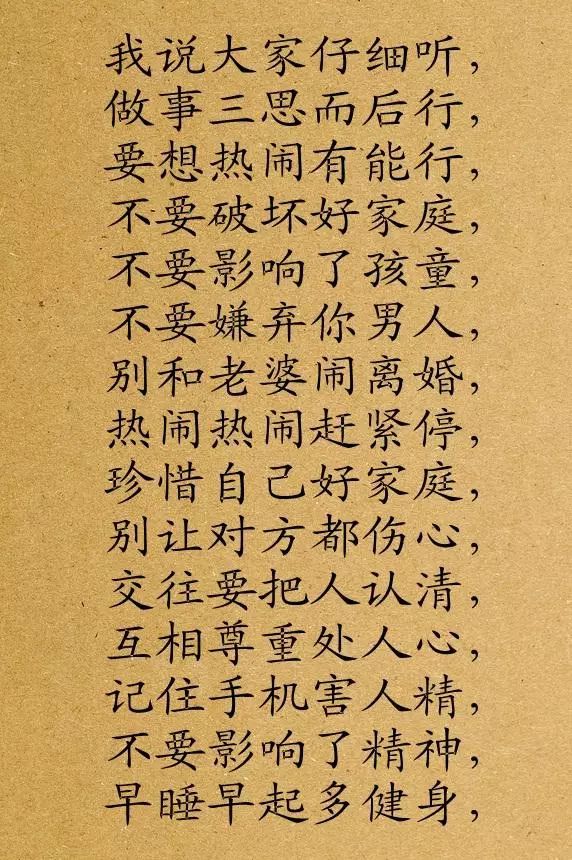 我说大家仔细听，
做事三思而后行，
要想热闹有能行，
不要破坏好家庭，
不要影响了孩童，
不要嫌弃你男人，
别和老婆闹离婚，
热闹热闹赶紧停，
珍惜自己好家庭，
别让对方都伤心，
交往要把人认清，
互相尊重处人心，
记住手机害人精，
不要影响了精神，
早睡早起多健身，